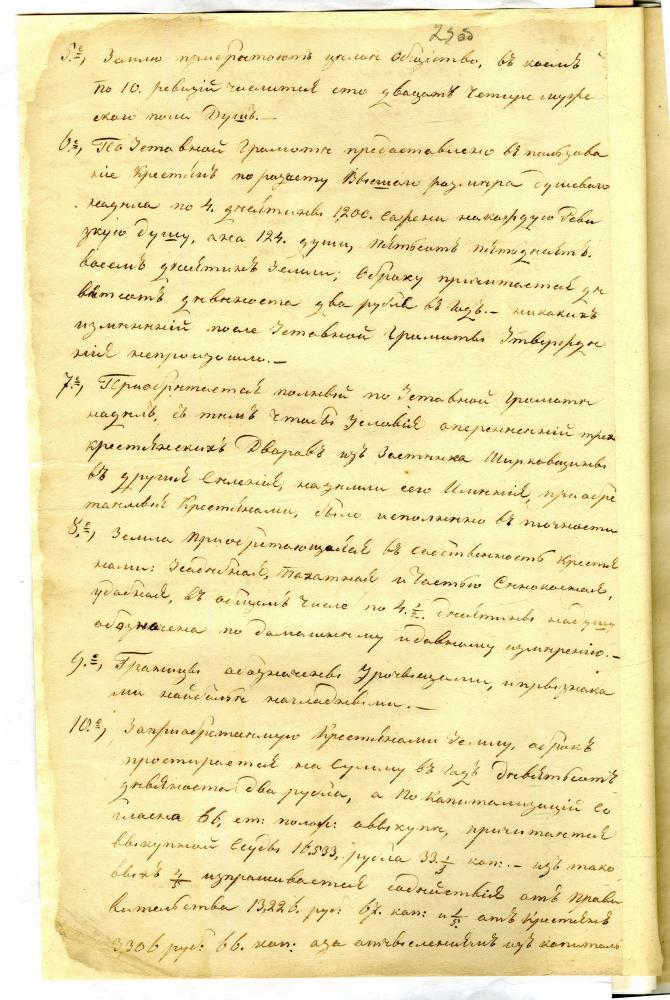 255
5.е, Землю приобретаютъ целое Общество, въ коемъ
по 10. ревизій числится сто двацать четыре муже
ского пола Душъ. —
6.е, По Уставной Грамоте предоставлено въ пользова
ніе Крестьянъ по разсчету Высшаго размера душеваго
надела по 4. десятины 1,200. сажени на каждую Реви
зкую душу, а на 124. души, пятьсотъ пятдесятъ
восемъ десятинъ Земли; Оброку причитается де
вятсотъ девеноста два рубля въ Годъ. — никакихъ
измененій после Уставной Грамоты Утвержде
нія непроизошло. —
7.е, Пріобретается полный по Уставной Грамоте
наделъ, съ темъ чтобы Условія о перенесеніи трехъ
крестьянскихъ Дворовъ изъ Застенка Ширковщины
въ другія Селенія, наземли сего Именія, пріобре
таемыя Крестьянами, было исполнено въ точности
8.е, Земля пріобретающаяся въ собственность Крестья
нами: Усадебная, Пахатная и Частью Сенокосная,
удобная, въ общемъ числе по 4. 1/2 десятины надушу
обозначена по домашнему и давному измеренію. —
9.е, Границы обозначены Урочищами, и призна
ми наиболее нагладными. —
10.е, Запріобретаемую Крестьянами Землю, оброкъ
простирается на Сумму въ Годъ Девятьсотъ
девяноста два рубля, а По капитализаціи Со
гласно 66, ст: полож: овыкупе, причитается
выкупной Ссуды 16,533, рубля 33 1/3 коп: — изъ тако
выхъ 4/5 испрашивается содействія отъ Прави
вительства 13,226. руб: 67. коп: и 1/5. отъ Крестьянъ
3,306 руб: 66. коп: аза отчисленіемъ изъ капиталь